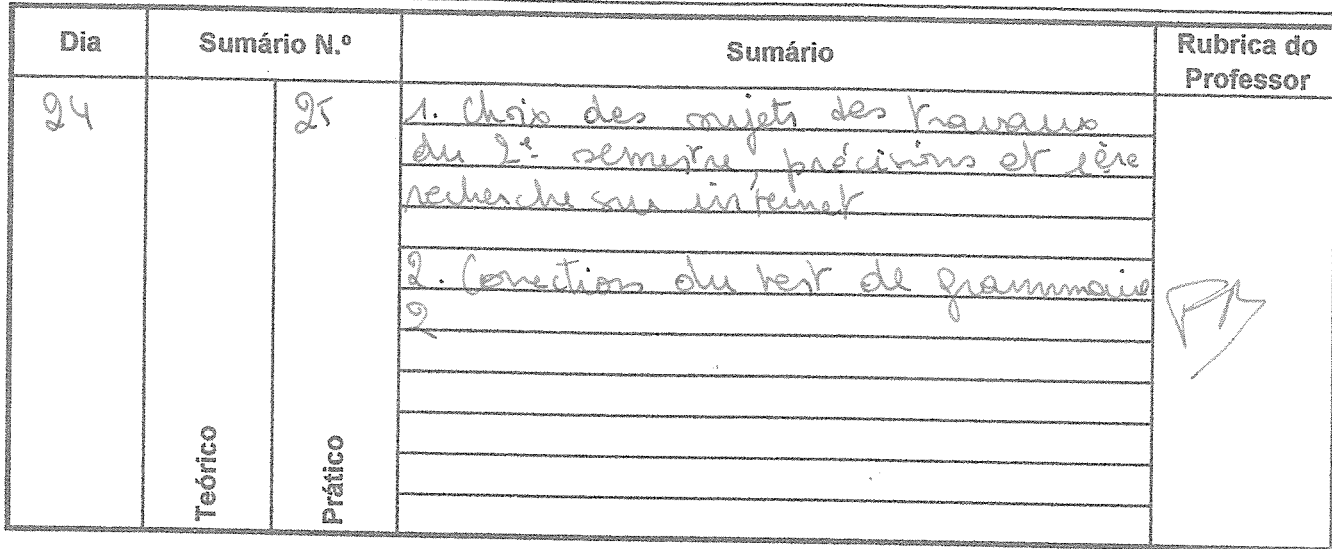 Dia Sumário N.º Sumário Rubrica do Professor
24 25 1. Choix des sujets des travaux
du 2e semestre, précisions et 1ère
recherche sur internet
2. Correction du test de grammaire
2
Teórico Prático